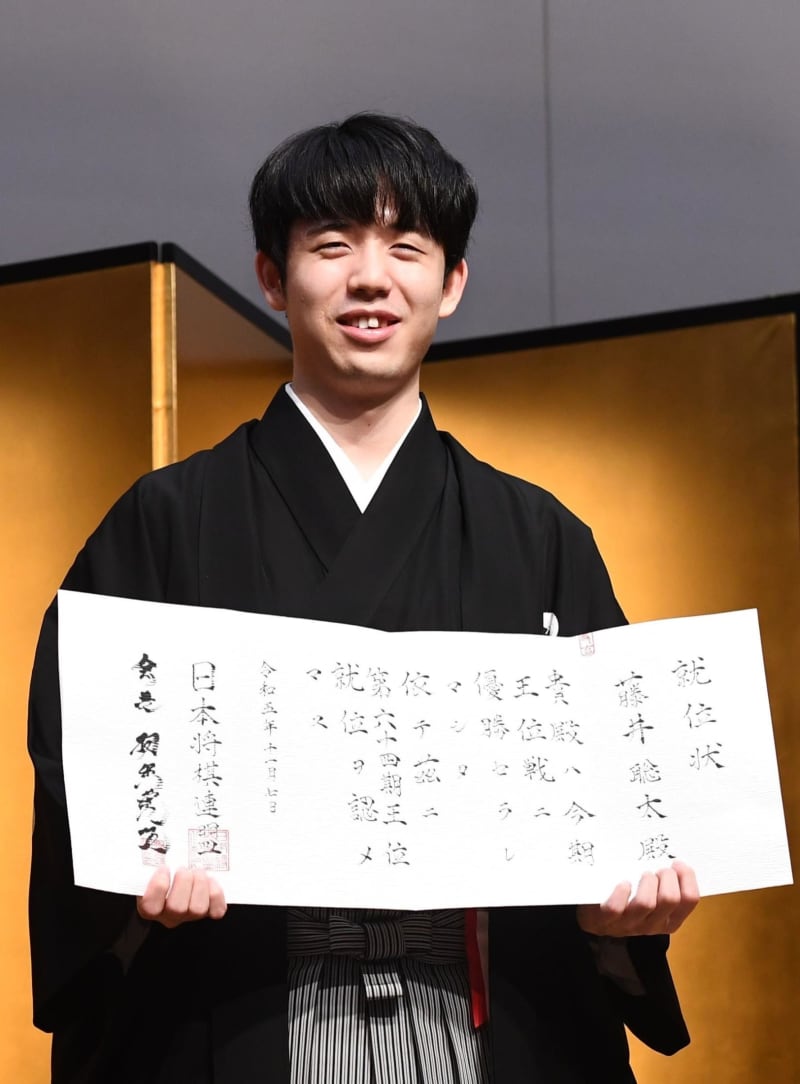 就位状
藤井聡太殿
貴殿ハ今期
王位戦ニ
優勝セラレ
マシタ
依テ茲ニ
第六十四期王位
就位ヲ認メ
マス
令和五年十一月七日
日本将棋連盟
会長 羽生善治